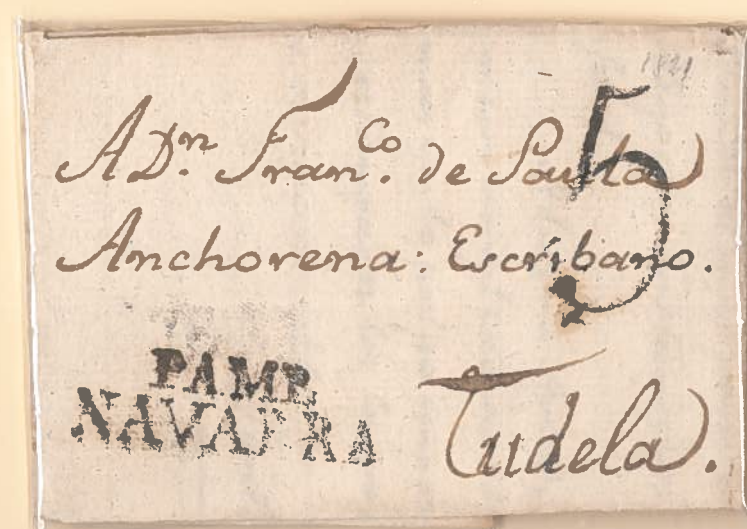 1821
5
A Dn. Fran.co de Paula
Anchorena: Escribano.
PAMP.
NAVARRA
Tudela.